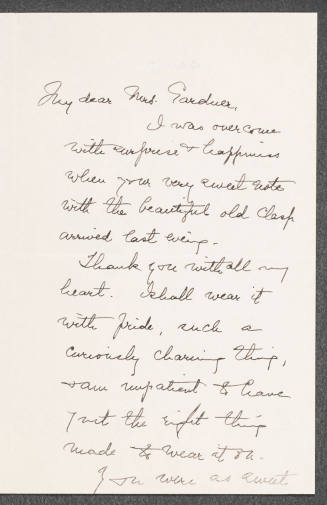 My dear Mrs. Gardner,
I was overcome
with surprise & happiness
when your very sweet note
with the beautiful old clasp
arrived last evening.
Thank you with all my
heart. I shall wear it
with pride, such a
curiously charming thing,
& am impatient to have
just the right thing
made to wear it on.
You were as sweet